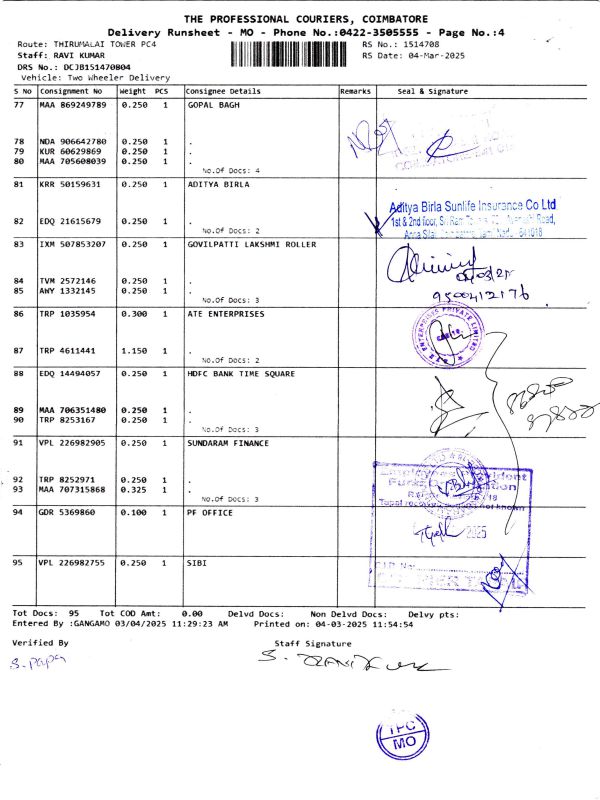 THE PROFESSIONAL COURIERS, COIMBATORE
Delivery Runsheet - MO - Phone No.:0422-3505555 - Page No.:4
Route: THIRUMALAI TOWER PC4 RS No.: 1514708
Staff: RAVI KUMAR RS Date: 04-Mar-2025
DRS No.: DCJB151470804
Vehicle: Two Wheeler Delivery
S No Consignment No Weight PCS Consignee Details Remarks Seal & Signature
77 MAA 869249789 0.250 1 GOPAL BAGH
78 NDA 906642780 0.250 1 .
79 KUR 60629869 0.250 1 .
80 MAA 705608039 0.250 1 .
No.Of Docs: 4
81 KRR 50159631 0.250 1 ADITYA BIRLA
Aditya Birla Sunlife Insurance Co Ltd
1st & 2nd floor, Road,
641018
82 EDQ 21615679 0.250 1 .
No.Of Docs: 2
83 IXM 507853207 0.250 1 GOVILPATTI LAKSHMI ROLLER
84 TVM 2572146 0.250 1 .
85 AWY 1332145 0.250 1 .
9500412176
No.Of Docs: 3
86 TRP 1035954 0.300 1 ATE ENTERPRISES
ENTERPRISES PRIVATE LIMITED
87 TRP 4611441 1.150 1 .
No.Of Docs: 2
88 EDQ 14494057 0.250 1 HDFC BANK TIME SQUARE
89 MAA 706351480 0.250 1 .
90 TRP 8253167 0.250 1 .
No.Of Docs: 3
91 VPL 226982905 0.250 1 SUNDARAM FINANCE
92 TRP 8252971 0.250 1 .
93 MAA 707315868 0.325 1 .
No.Of Docs: 3
not known
94 GDR 5369860 0.100 1 PF OFFICE
2025
95 VPL 226982755 0.250 1 SIBI
Tot Docs: 95 Tot COD Amt: 0.00 Delvd Docs: Non Delvd Docs: Delvy pts:
Entered By :GANGAMO 03/04/2025 11:29:23 AM Printed on: 04-03-2025 11:54:54
Verified By Staff Signature
S. Papa
TPC
MO